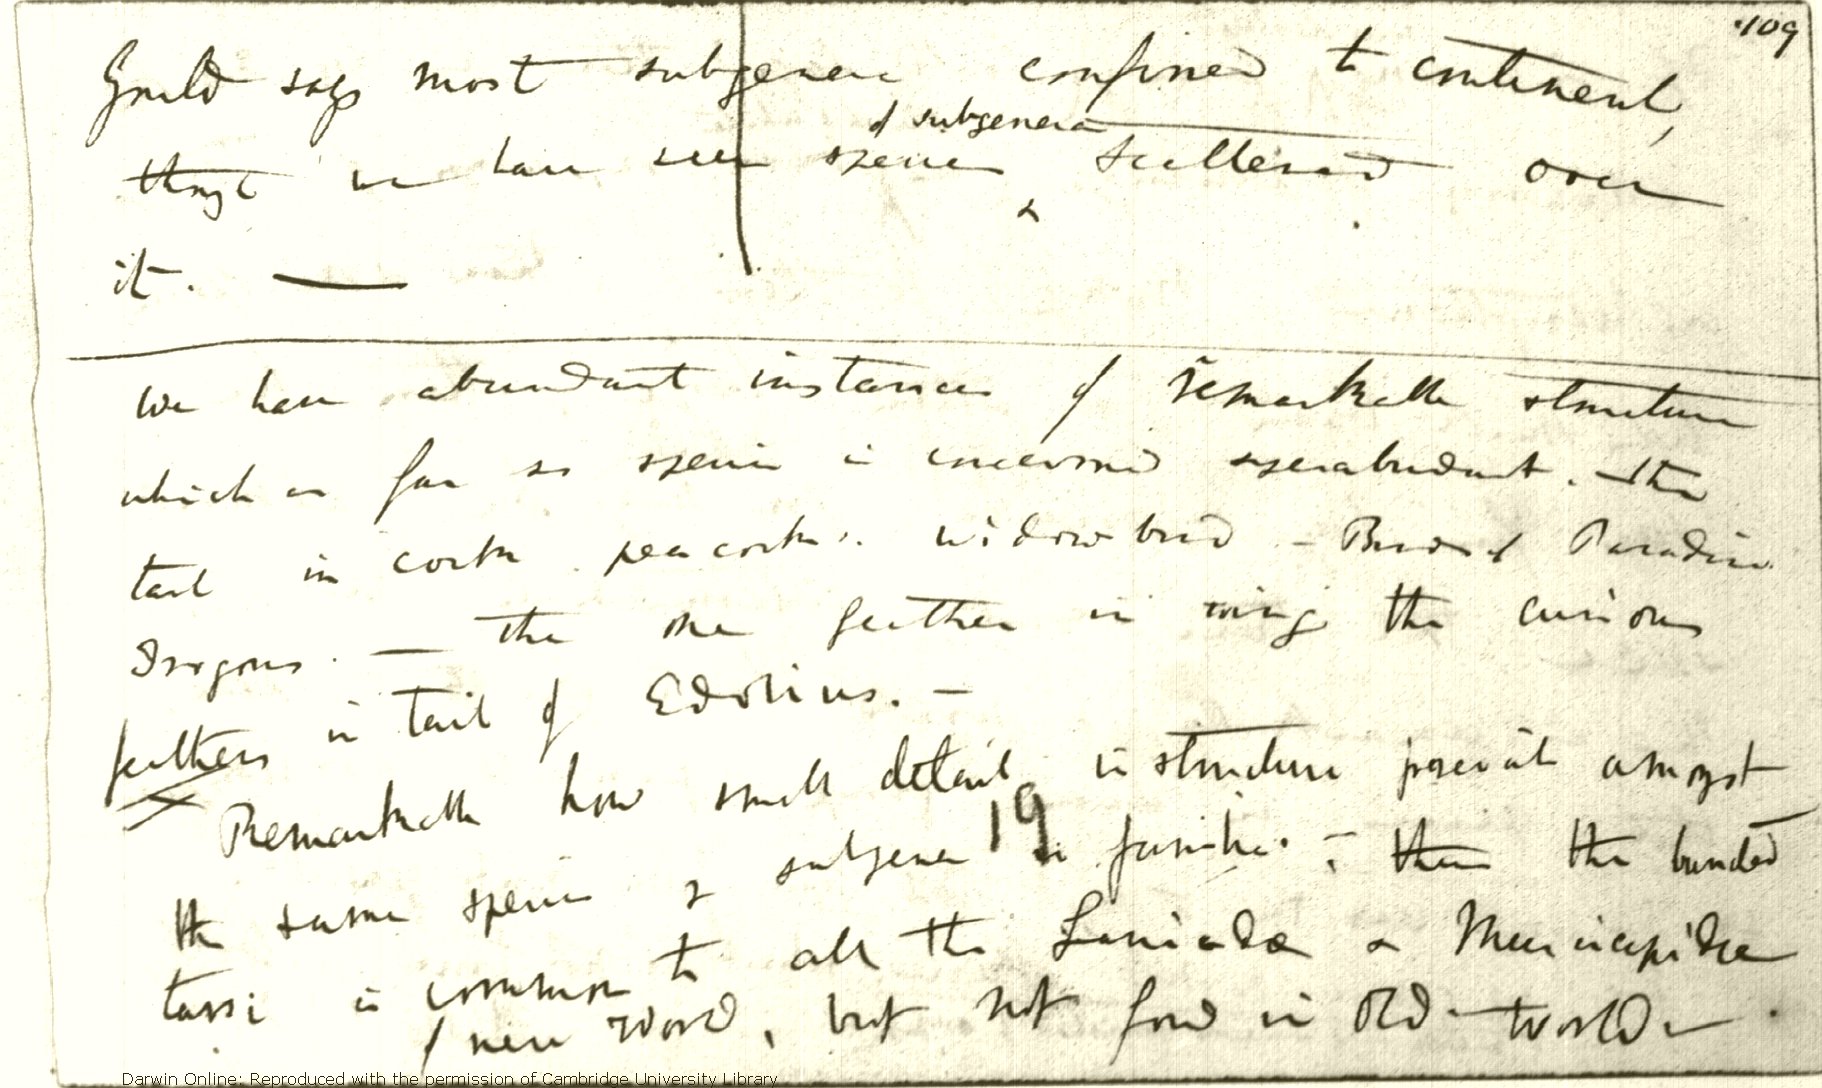 109
Gould says most subgenera confined to continent,
though we have seen species of subgenera scattered over
it. —
We have abundant instances of remarkable structure
which as far as species is concerned superabundant. — the
tail in cocks peacocks. widow bird — Birds of Paradise
Trogons. — the one feather in wing the curious
feathers in tail of Edolius. —
Remarkable how small detail in structure prevails amongst
the same species & subgenera in families. — then the banded
19
tarsi is common to all the Laniadae & Muscicapidae
of new World, but not found in Old World —
Darwin Online: Reproduced with the permission of Cambridge University Library